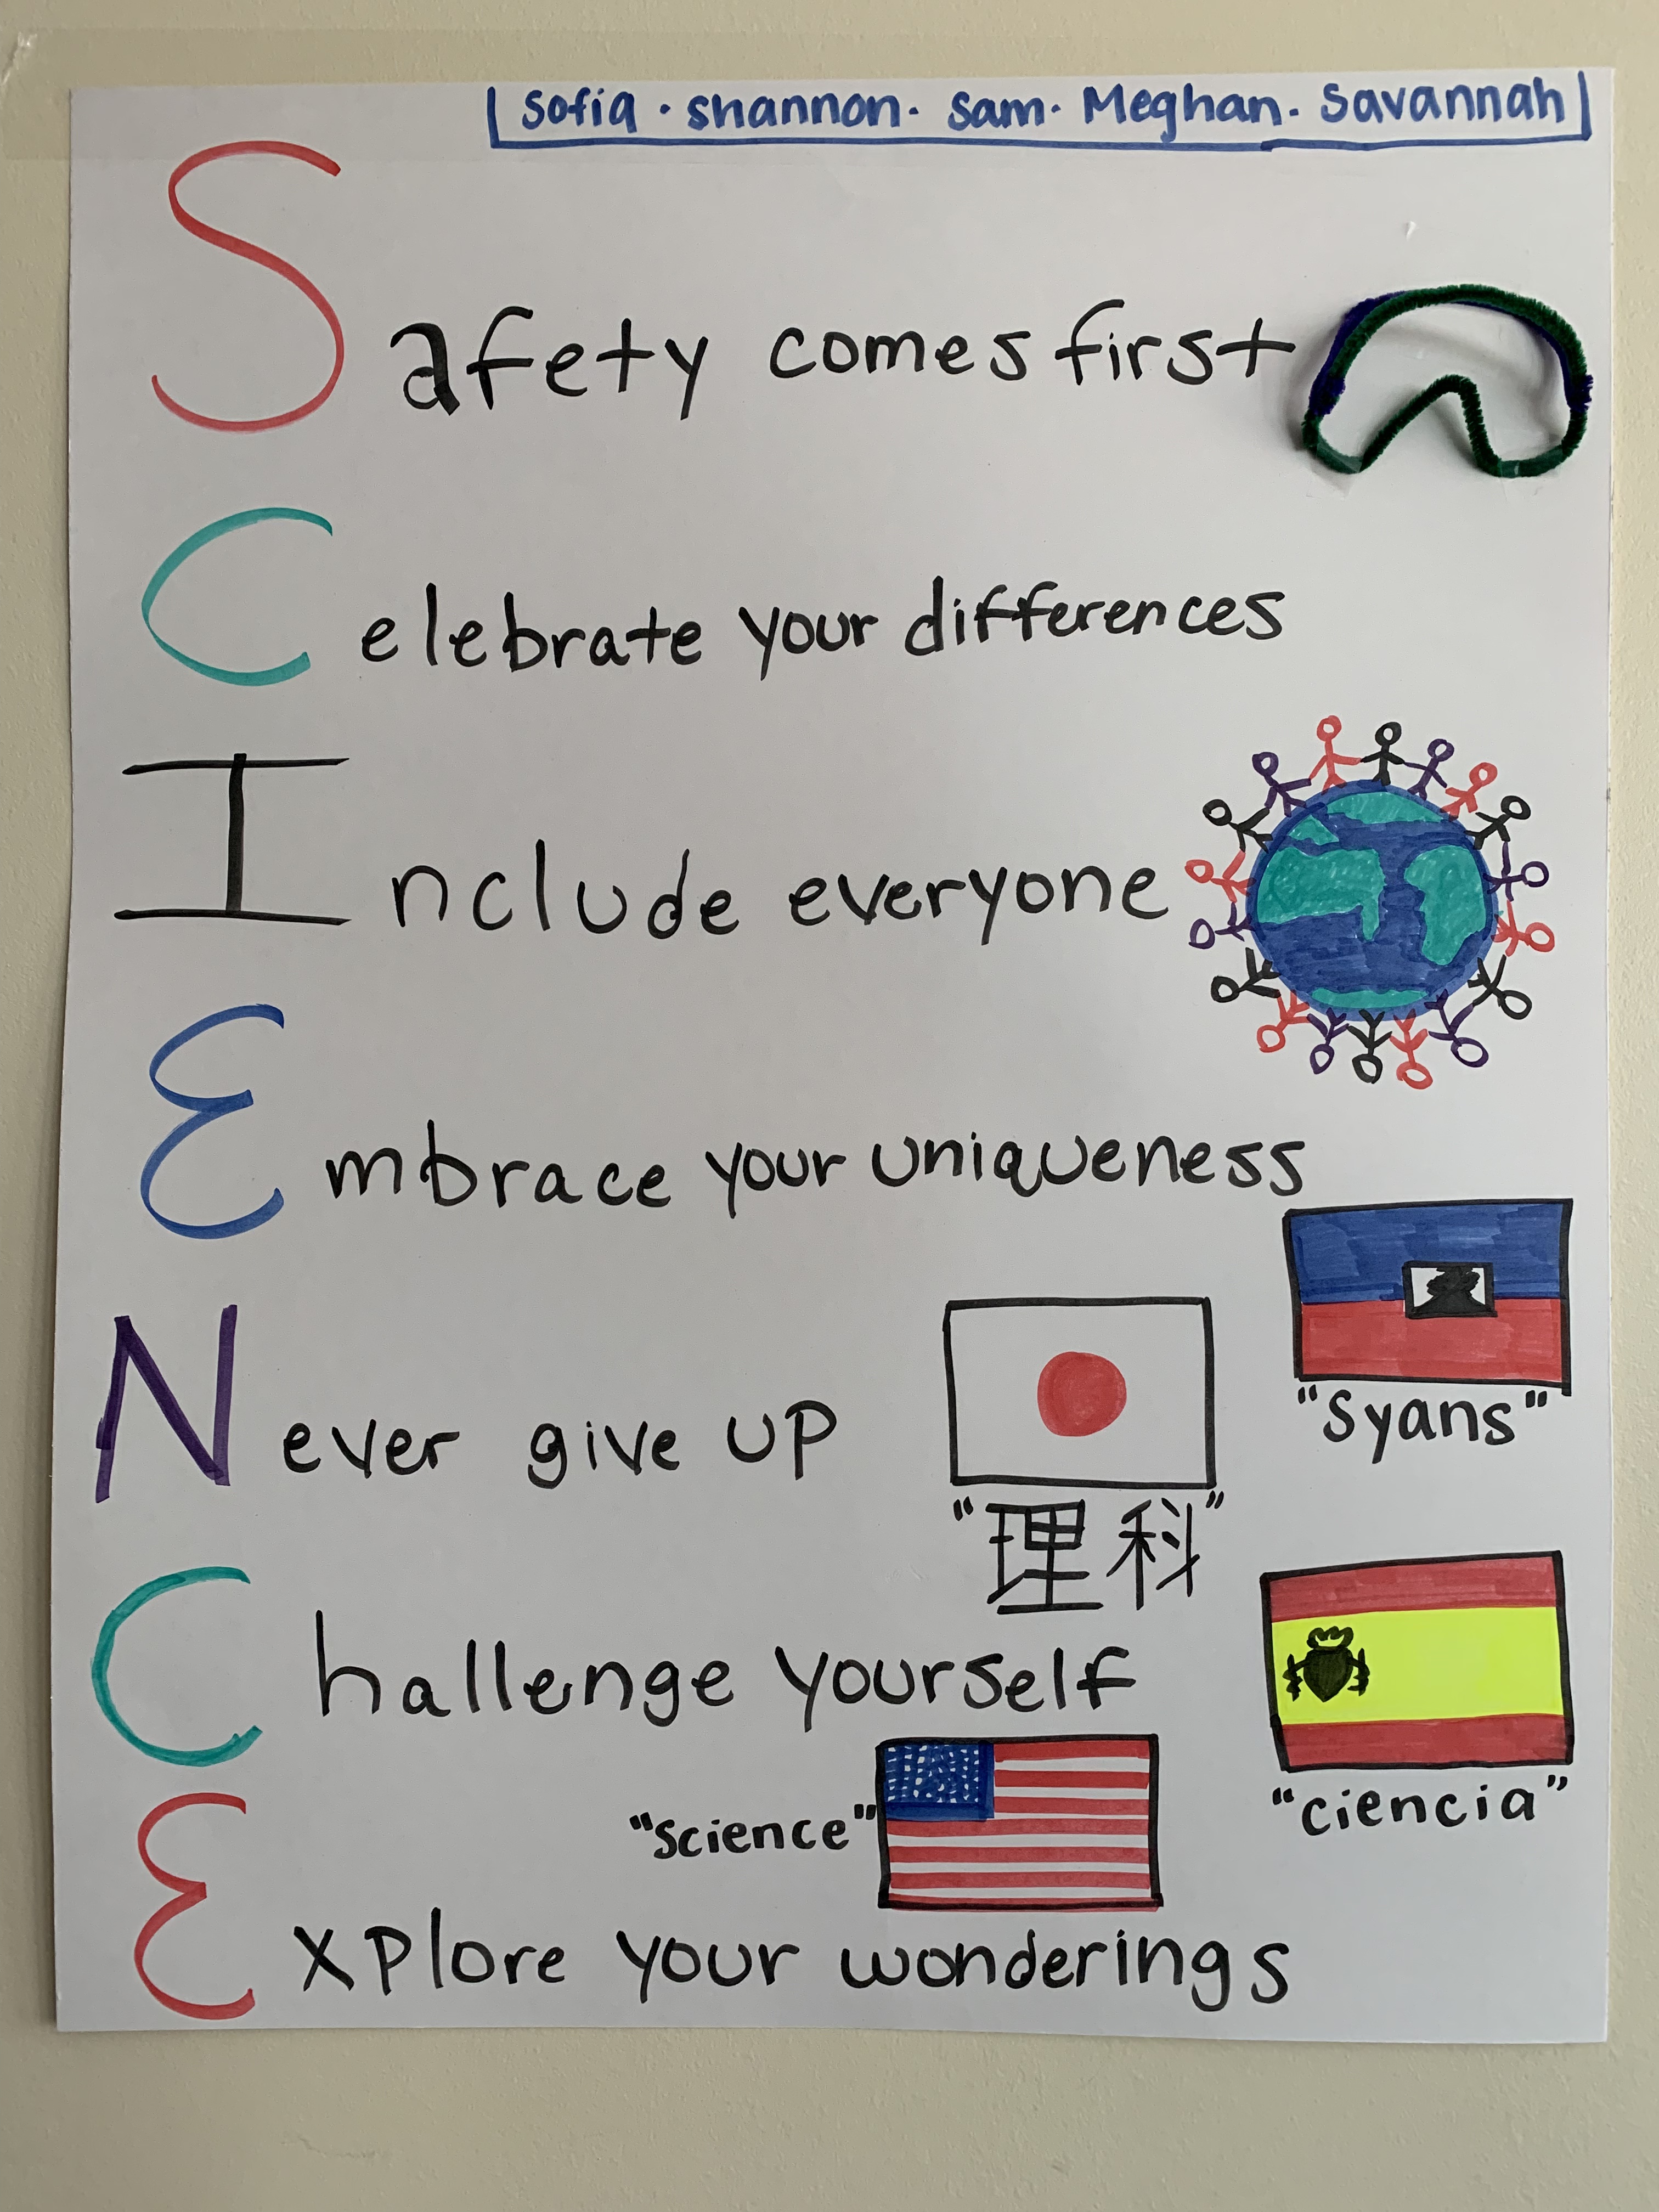 Sofia · Shannon · Sam · Meghan · Savannah
Safety comes first
Celebrate your differences
Include everyone
Embrace your uniqueness
"Syans"
Never give up
"理科"
Challenge yourself
"ciencia"
"science"
Explore your wonderings